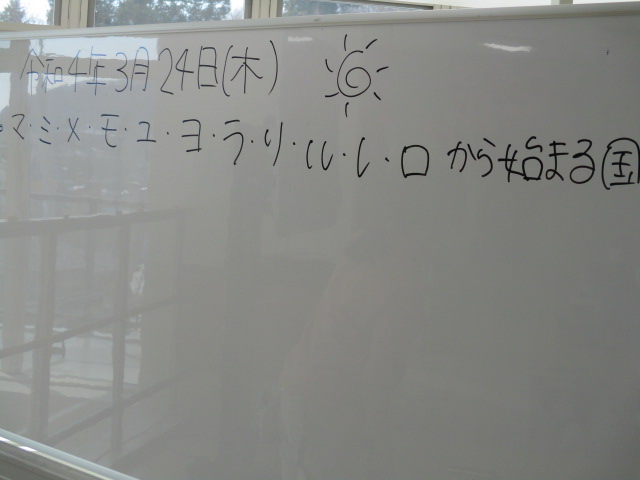 令和4年3月24日(木)
・マ・ミ・メ・モ・ユ・ヨ・ラ・リ・ル・レ・ロ から始まる国